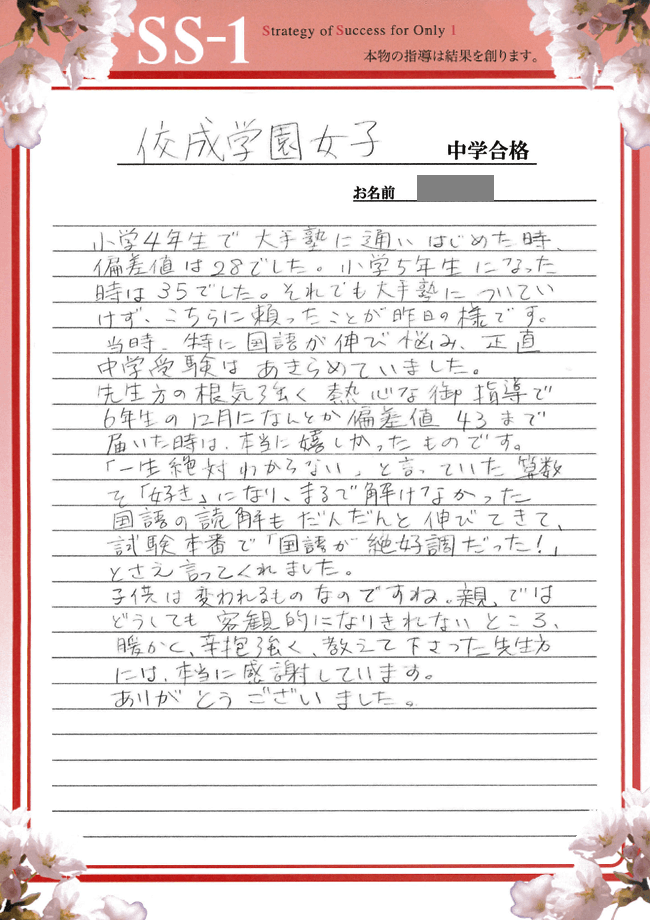 SS-1
Strategy of Success for Only 1
本物の指導は結果を創ります。
佼成学園女子 中学合格
お名前
小学4年生で大手塾に通いはじめた時、
偏差値は28でした。小学5年生になった
時は35でした。それでも大手塾についてい
けず、こちらに頼ったことが昨日の様です。
当時、特に国語が伸び悩み、正直
中学受験はあきらめていました。
先生方の根気強く熱心な御指導で
6年生の12月になんとか偏差値43まで
届いた時は、本当に嬉しかったものです。
「一生絶対わからない」と言っていた算数
を「好き」になり、まるで解けなかった
国語の読解もだんだんと伸びてきて、
試験本番で「国語が絶好調だった!」
とさえ言ってくれました。
子供は変われるものなのですね。親、では
どうしても客観的になりきれないところ、
暖かく、辛抱強く、教えて下さった先生方
には、本当に感謝しています。
ありがとうございました。